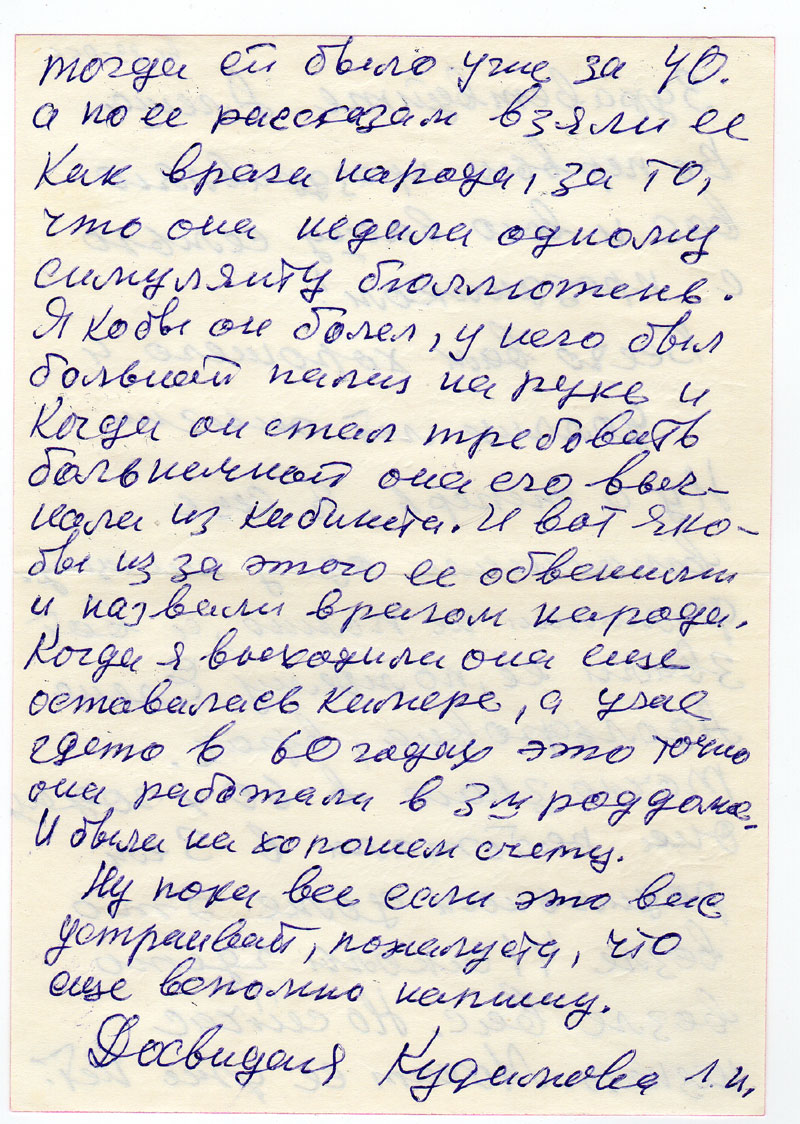 тогда ей было уже за 40.
а по ее рассказам взяли ее
как врага народа, за то,
что она недала одному
симулянту бюллютень.
Якобы он болел, у него был
больной палец на руке и
когда он стал требовать
больничной она его выг-
нала из кабинета. И вот яко-
бы из за этого ее обвенили
и назвали врагом народа.
Когда я выходила она еще
оставалась камере, а уже
гдето в 60 годах это точно
она работала в 3м роддоме.
И была на хорошем счету.
Ну пока все если это вас
устраивает, пожалуста, что
еще вспомню напишу.
Досвидания Кудимова Л.И.